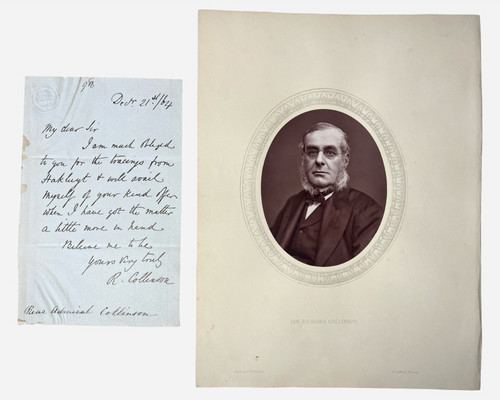 Decr 21st/64
My dear Sir
I am much obliged
to you for the tracings from
Hakluyt & will avail
myself of your kind offer
when I have got the matter
a little more in hand.
Believe me to be
Yours very truly
R. Collinson
Rear Admiral Collinson